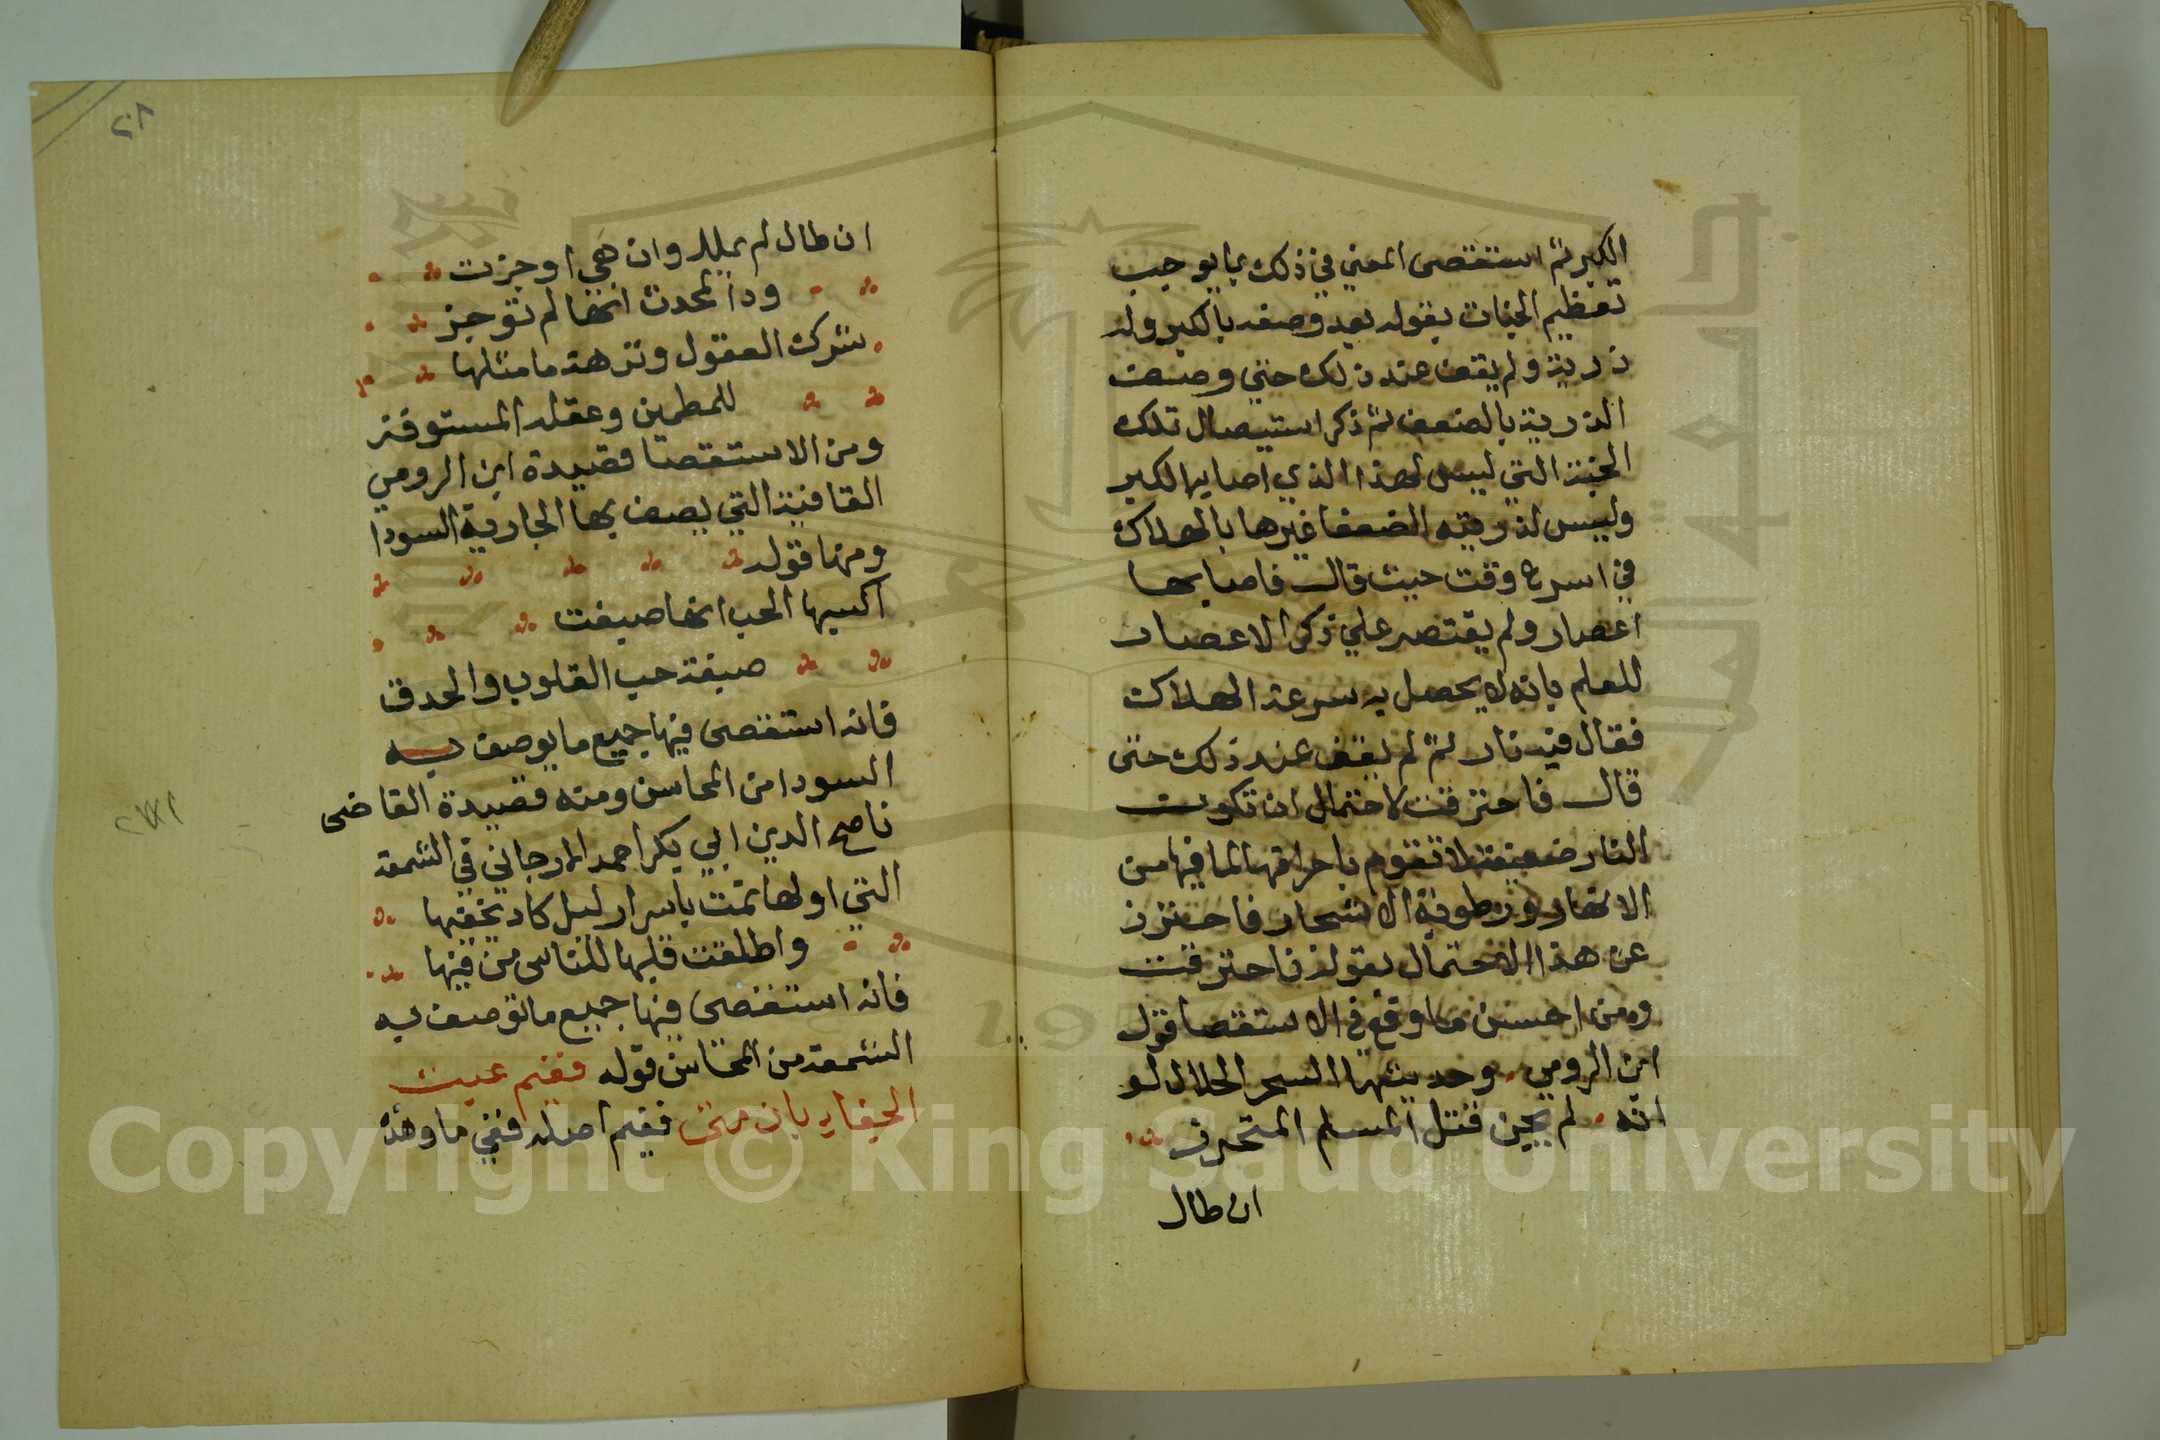 الكبر ثم استقصى المعني في ذلك بما يوجب
تعظيم الجنات بقوله بعد وصفه بالكبر وله
ذرية ولم يقف عند ذلك حتي وصف
الذرية بالضعف ثم ذكر استيصال تلك
الجنة التي ليس لهذا الذي اصابها الكبر
وليس لذريته الضعفا غيرها بالهلاك
في اسرع وقت حيث قال فاصابها
اعصار ولم يقتصر علي ذكر الاعصار
للعلم بانه لا يحصل به سرعة الهلاك
فقال فيه نار ثم لم يقف عند ذلك حتى
قال فاحترقت لاحتمال ان تكون
النار ضعيفة لا تقوم باحراقها لما فيها من
الانهار ورطوبة الاشجار فاحترز
عن هذا الاحتمال بقوله فاحترقت
ومن احسن ما وقع في الاستقصا قول
ابن الرومي وحديثها السحر الحلال لو
انه لم يجن قتل المسلم المتحرز
ان طال
٢٨
ان طال لم يملل وان هي اوجزت
ود المحدث انها لم توجز
شرك العقول ونزهة ما مثلها
للمطمين وعقله المستوفز
ومن الاستقصا قصيدة ابن الرومي
القافية التي يصف بها الجارية السودا
ومنها قوله
اكسبها الحب انها صبغت
صبغة حب القلوب والحدق
فانه استقصى فيها جميع ما يوصف به
السودا من المحاسن ومنه قصيدة القاضى
ناصح الدين ابي بكر احمد الارجاني في الشمعة
التي اولها نمت باسرار ليل كاد يخفيها
واطلقت قلبها للناس من فيها
فانه استقصى فيها جميع ما توصف به
الشمعة من المحاسن قوله فغنم عيت
الحيفا بان منى فغنم اصله ففي ما وهذه
Copyright © King Saud University